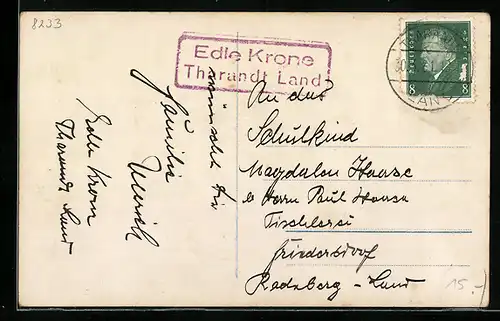 8233
Edle Krone
Tharandt Land
8 8
wünscht Dir
Familie
Edle Krone
Tharandt Land
An das
Schulkind
Magdalen Haase
b Herrn Paul Haase
Tischlerei
Friedersdorf
Radeberg - Land
15.-